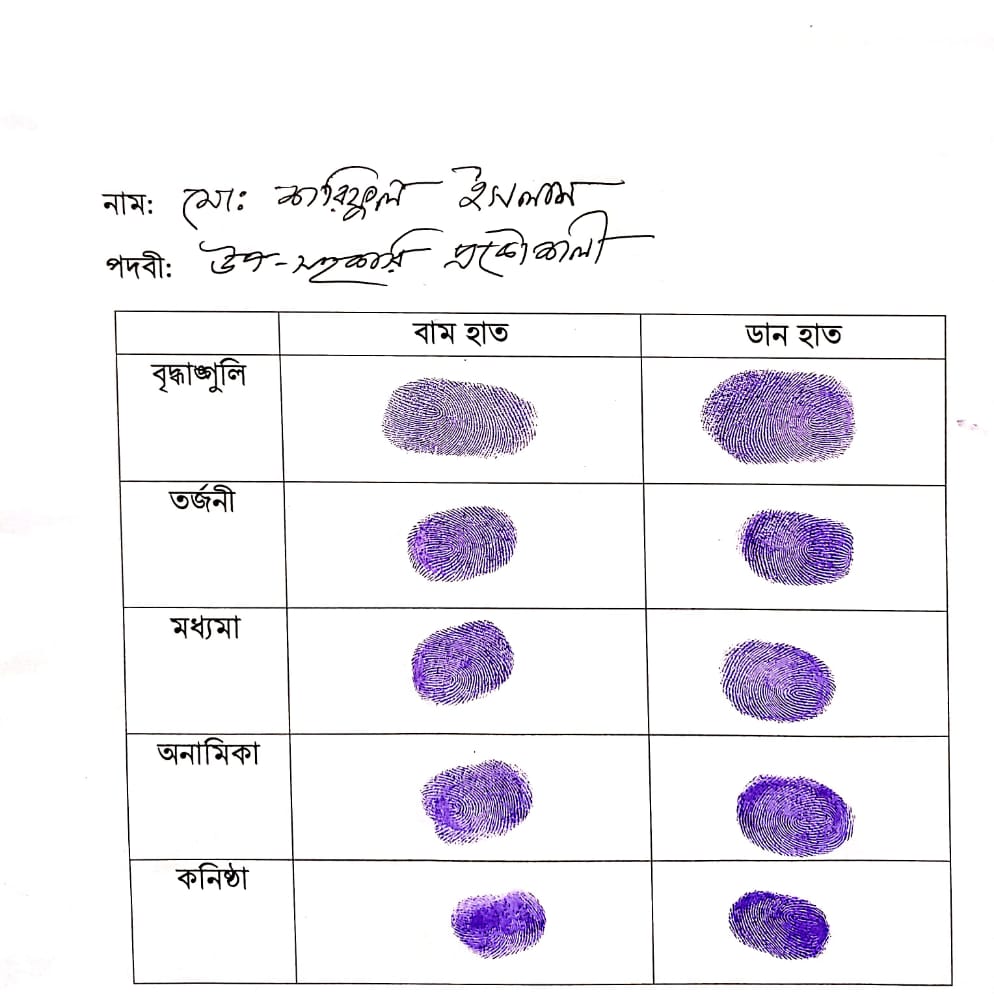 নাম: মো: শরিফুল ইসলাম
পদবী: উপ-সহকারী প্রকৌশলী
বাম হাত ডান হাত
বৃদ্ধাঙ্গুলি
তর্জনী
মধ্যমা
অনামিকা
কনিষ্ঠা